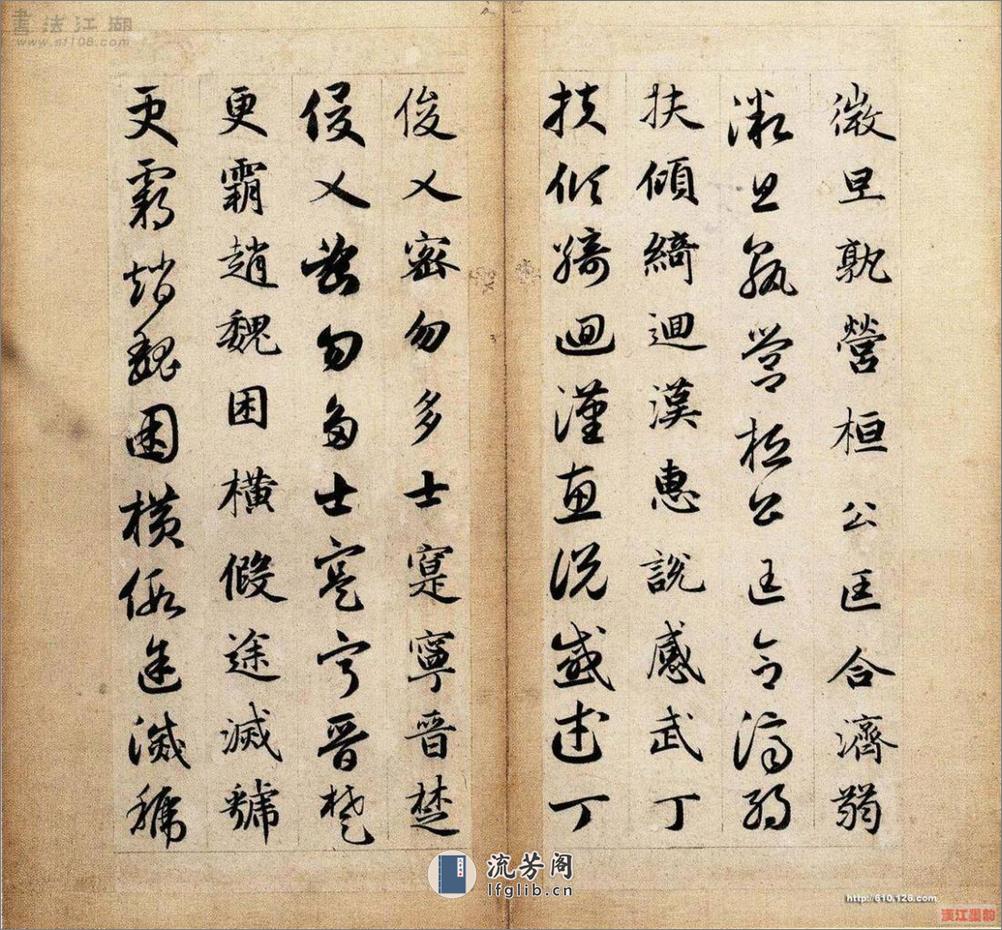 微旦孰營桓公匡合濟弱
微旦孰營桓公匡合濟弱
扶傾綺迴漢惠說感武丁
扶傾綺迴漢惠說感武丁
俊乂密勿多士寔寧晉楚
俊乂密勿多士寔寧晉楚
更霸趙魏困橫假途滅虢
更霸趙魏困橫假途滅虢
書法江湖
www.sf108.com
流芳阁
lfglib.cn
http://610.126.com
漢江墨韵